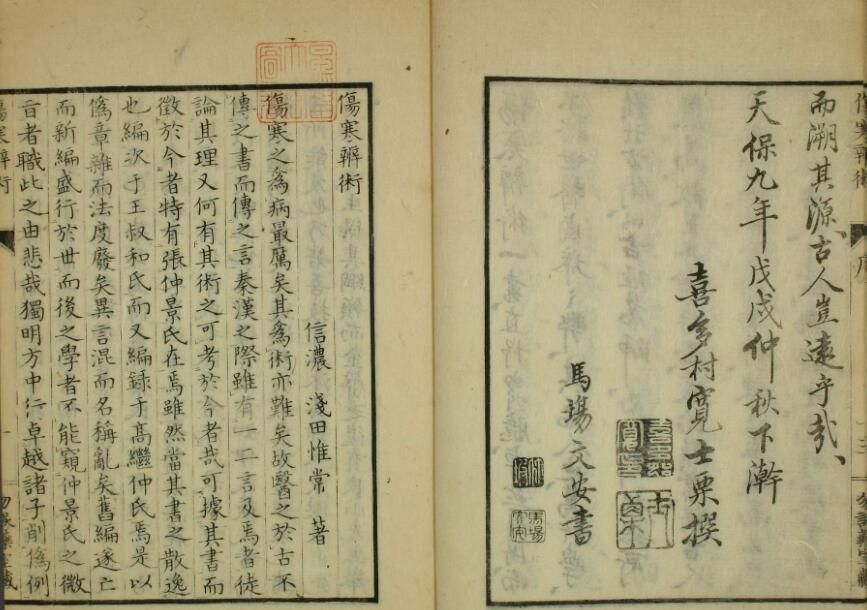 而溯其源、古人豈遠乎哉、
天保九年戊戌仲秋下澣
喜多村寬士栗撰
馬場文安書
傷寒辨術
信濃 淺田惟常 著
傷寒之為病最厲矣其為術亦難矣故醫之於古不
傳之書而傳之言秦漢之際雖有一二言及焉者徒
論其理又何有其術之可考於今者哉可據其書而
徵於今者特有張仲景氏在焉雖然當其書之散逸
也編次于王叔和氏而又編録于高繼仲氏焉是以
為章雜而法度廢矣異言混而名稱亂矣舊編遂亡
而新編盛行於世而後之學者不能窺仲景氏之微
旨者職此之由悲哉獨明方中行卓越諸子削為例
傷寒辨術